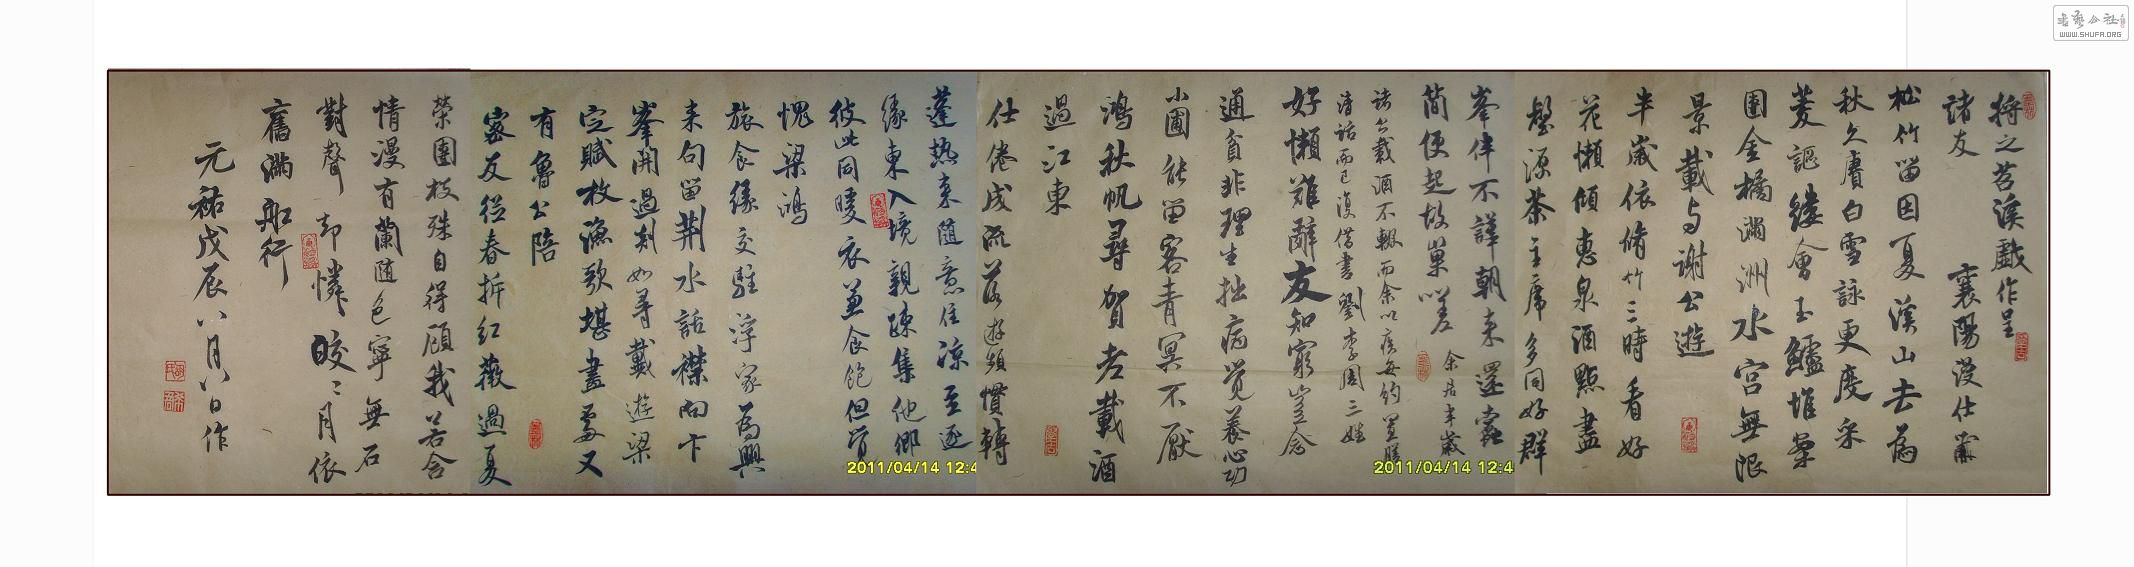 将之苕溪戲作呈
諸友 襄陽漫仕黻
松竹留因夏溪山去為
秋久賡白雪詠更度采
菱謳縷會玉鱸堆案
團金橘滿洲水宮無限
景載与謝公遊
半歲依脩竹三時看好
花懶傾惠泉酒點盡
壑源茶主席多同好群
峯伴不譁朝来還蠹
簡便起故巢嗟 余居半歲
諸公載酒不輟而余以疾每約置膳
清話而已復借書劉李周三姓
好懶難辭友知窮豈念
通貧非理生拙病覺養心功
小圃能留客青冥不厭
鴻秋帆尋賀老載酒
過江東
仕倦成流落遊頻慣轉
蓬熱来随意住凉至逐
緣東入境親疎集他鄉
彼此同暖衣兼食飽但覺
愧梁鴻
旅食緣交駐浮家為興
来句留荆水話襟向卞
峯開過剡如尋戴遊梁
定賦枚漁歌堪畫處又
有魯公陪
密友從春拆紅薇過夏
榮團枝殊自得顧我若含
情漫有蘭随色寧無石
對聲却憐皎々月依
舊滿船行
元祐戊辰八月八日作
2011/04/14 12:4
2011/04/14 12:4
WWW.SHUFA.ORG